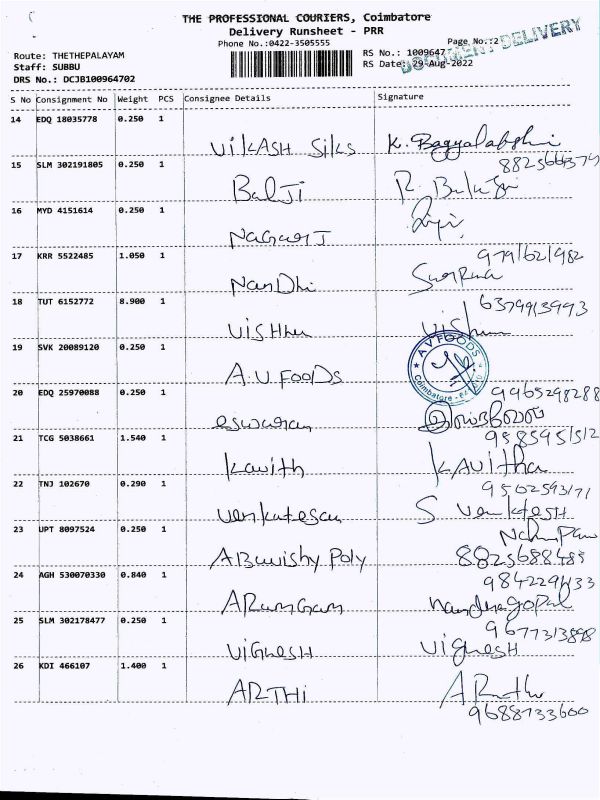 THE PROFESSIONAL COURIERS, Coimbatore
Delivery Runsheet - PRR
Phone No.:0422-3505555
Page No.:2
DOCUMENT DELIVERY
Route: THETHEPALAYAM
RS No.: 1009647
Staff: SUBBU
RS Date: 29-Aug-2022
DRS No.: DCJB100964702
S No Consignment No Weight PCS Consignee Details Signature
14 EDQ 18035778 0.250 1
VIKASH Silks K. Bagyalakshmi
15 SLM 302191805 0.250 1
BalJi R. Balaji
16 MYD 4151614 0.250 1
NagarJ
17 KRR 5522485 1.050 1 9791621982
NanDhi
18 TUT 6152772 8.900 1 6379913993
VISHnu Vishnu
19 SVK 20089120 0.250 1
A.V. FOODS A V FOODS Coimbatore
20 EDQ 25970088 0.250 1 9965298288
eswaran
21 TCG 5038661 1.540 1 9585951512
kavith KAVitha
22 TNJ 102670 0.290 1 9502593171
Venkatesan S Venkatesh
23 UPT 8097524 0.250 1
Poly 8825688485
24 AGH 530070330 0.840 1
ARumgam nandhagopal
25 SLM 302178477 0.250 1 9677313898
VIGNESH VIGNESH
26 KDI 466107 1.400 1
ARTHI
9688733600